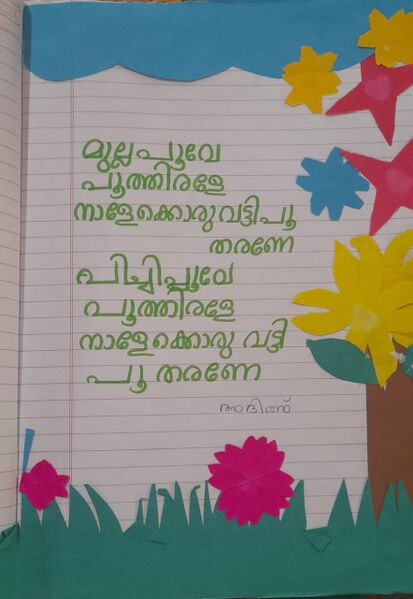 മുല്ലപ്പൂവേ
പൂത്തിരളേ
നാളേക്കൊരുവട്ടിപൂ
തരണേ
പിച്ചിപ്പൂവേ
പൂത്തിരളേ
നാളേക്കൊരു വട്ടി
പൂ തരണേ